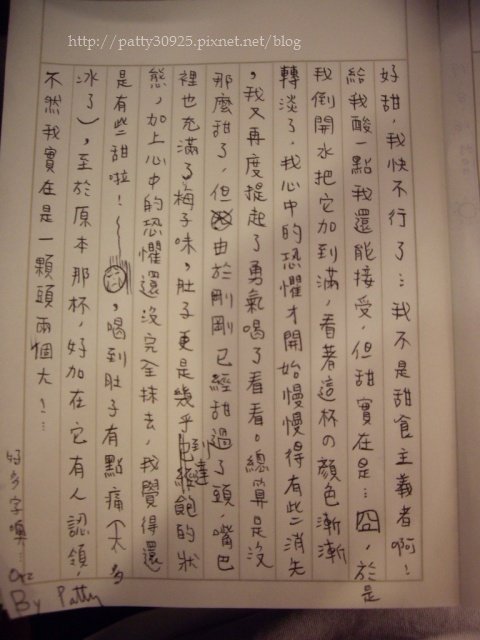 http://patty30925.pixnet.net/blog
好甜，我快不行了…我不是甜食主義者啊！
給我酸一點我還能接受，但甜實在是…囧，於是
我倒開水把它加到滿，看著這杯の顏色漸漸
轉淡了，我心中的恐懼才開始慢慢得有些消失
，我又再度提起了勇氣喝了看看。總算是沒
那麼甜了，但由於剛剛已經甜過了頭，嘴巴
裡也充滿了梅子味，肚子更是幾乎到達飽的狀
態，加上心中的恐懼還沒完全抹去，我覺得還
是有些甜啦！～，喝到肚子有點痛(太多
冰了)，至於原本那杯，好加在它有人認領，
不然我實在是一顆頭兩個大！…
好多字噢… Orz
By Patty